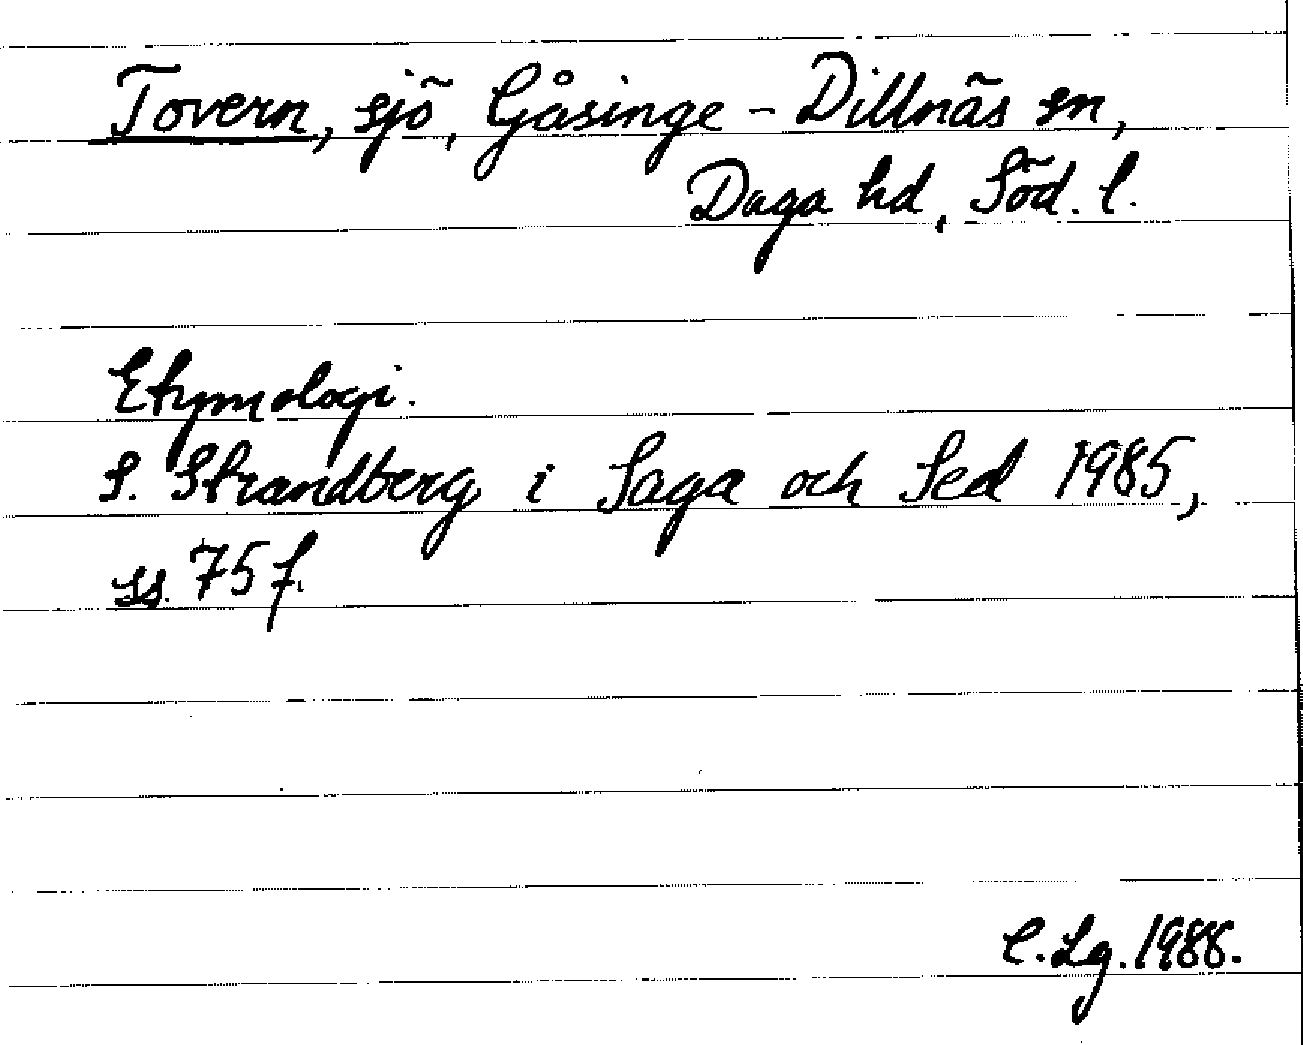 Tovern, sjö, Gåsinge-Dillnäs sn,
Daga hd, Söd. l.
Etymologi.
S. Strandberg i Saga och Sed 1985,
ss. 75 f.
C. Lg. 1988.